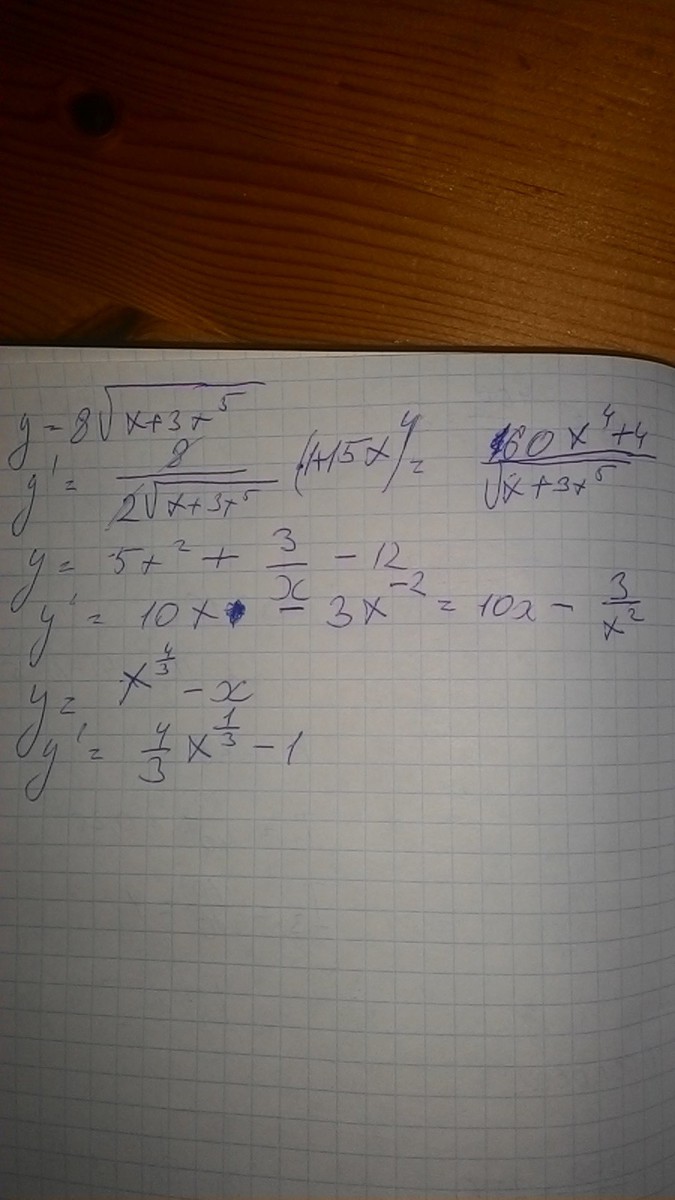 y = 8√(x+3x⁵)
y' = 8/(2√(x+3x⁵)) (1+15x⁴) = (60x⁴+4)/√(x+3x⁵)
y = 5x² + 3/x − 12
y' = 10x − 3x⁻² = 10x − 3/x²
y = x^(4/3) − x
y' = 4/3 x^(1/3) − 1